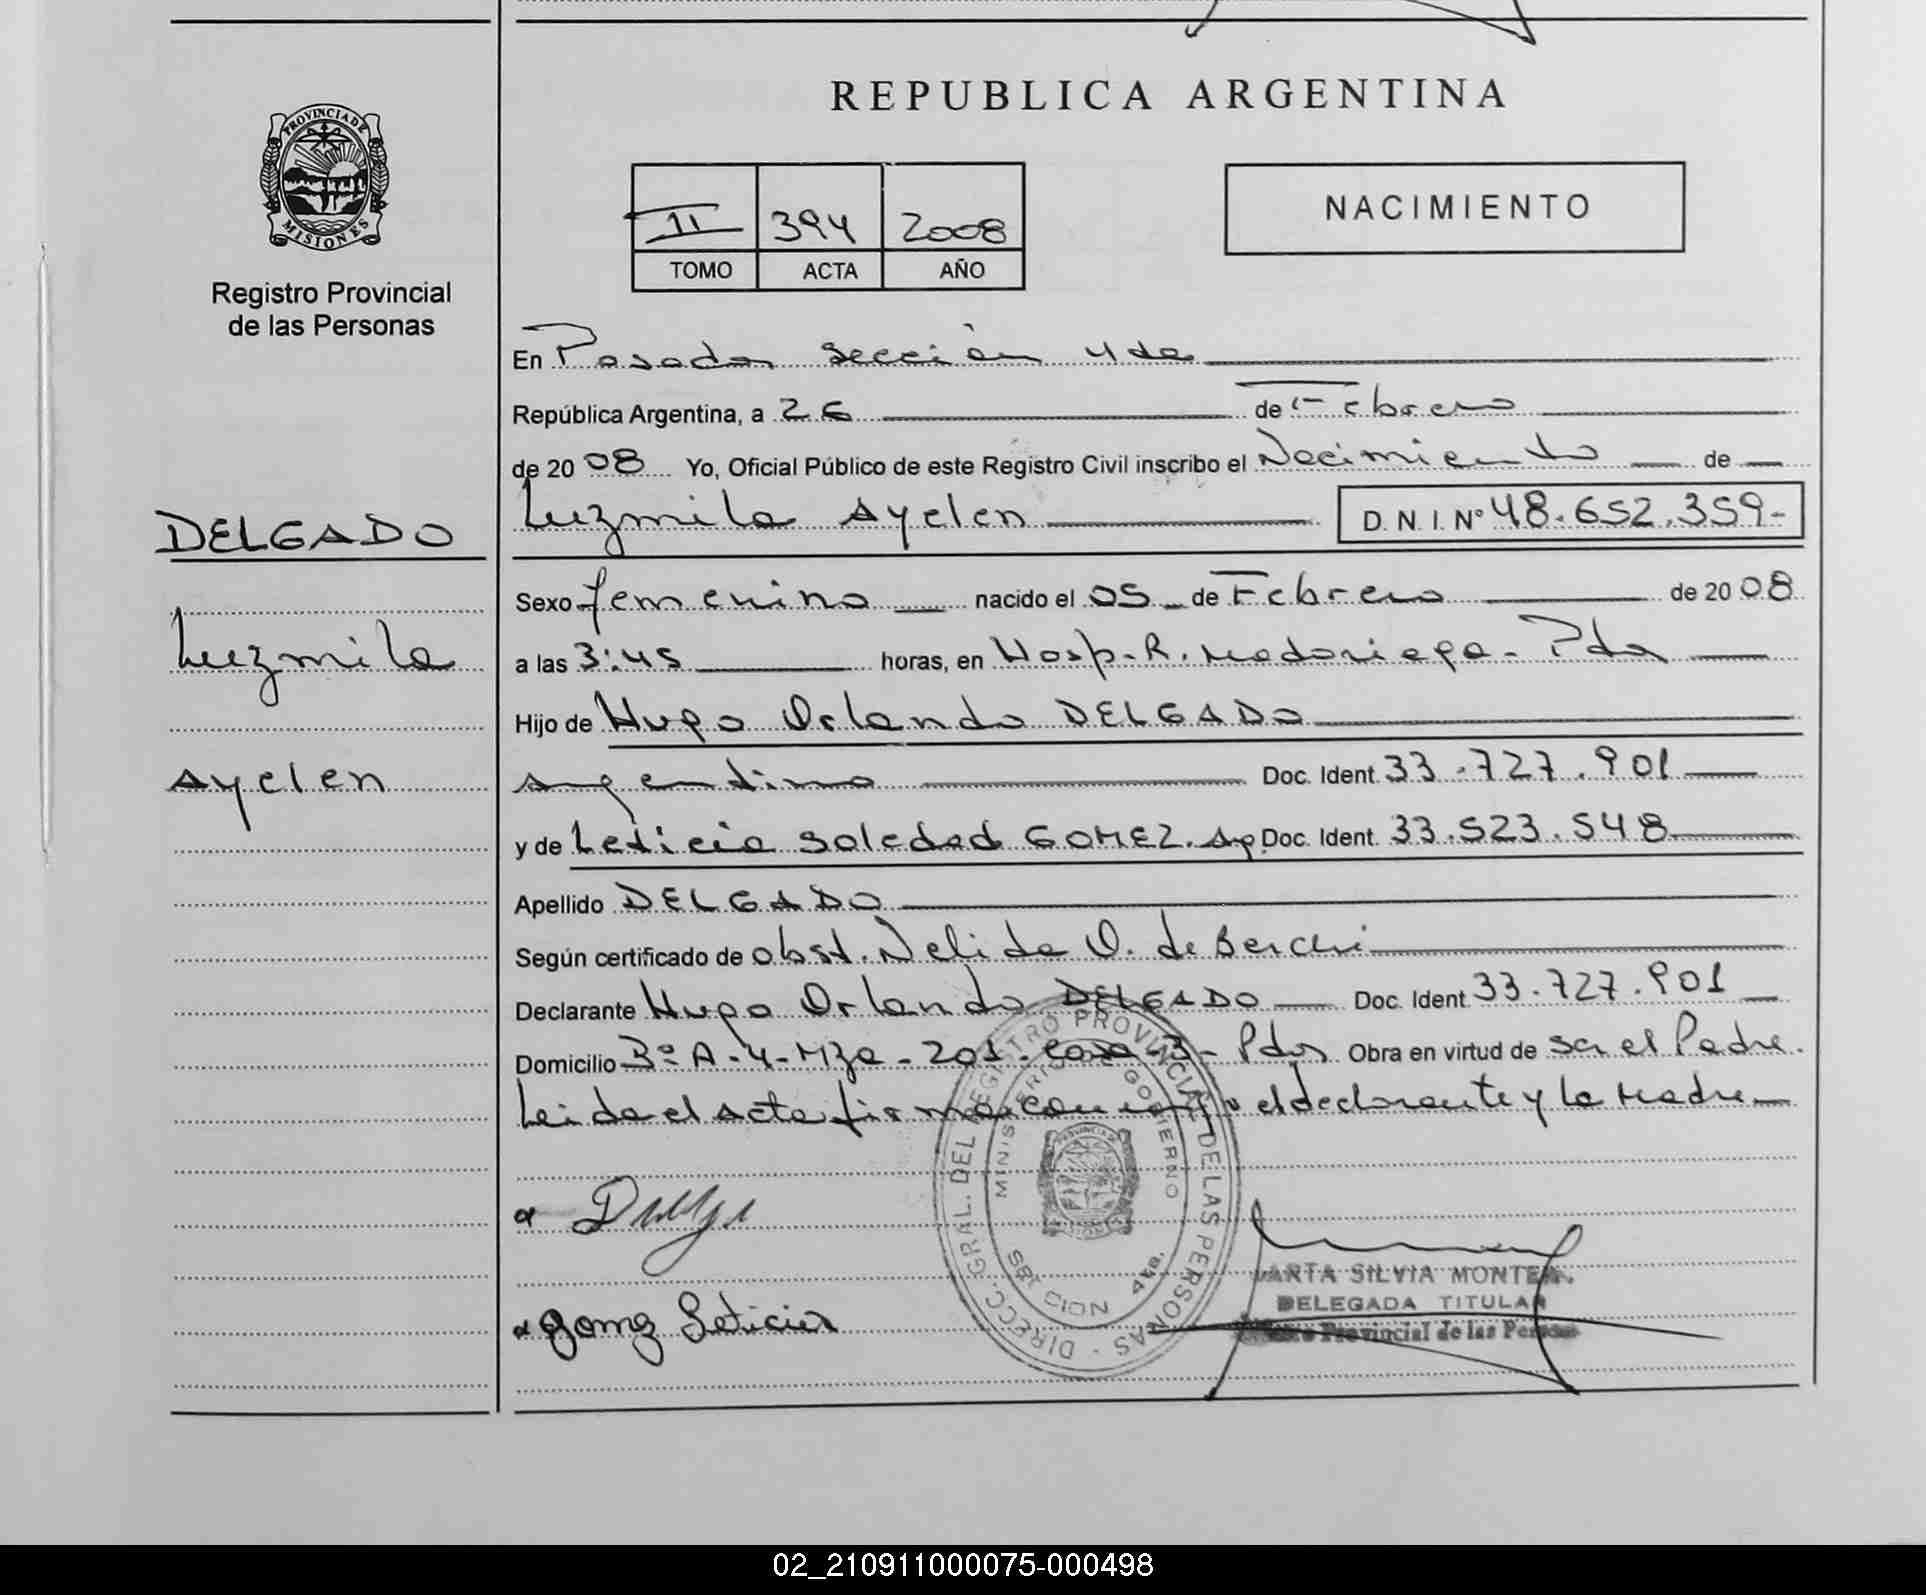 REPUBLICA ARGENTINA
PROVINCIA DE
MISIONES
Registro Provincial
de las Personas
II 394 2008
TOMO ACTA AÑO
NACIMIENTO
En Posadas Sección 4ta
República Argentina, a 26 de Febrero
de 2008 Yo, Oficial Público de este Registro Civil inscribo el Nacimiento de
Luzmila Ayelen D.N.I. Nº 48.652.359-
DELGADO
Luzmila
Ayelen
Sexo femenino nacido el 05 de Febrero de 2008
a las 3:45 horas, en Hosp. R. Madariaga - Pdas
Hijo de Hugo Orlando DELGADO
argentino Doc. Ident. 33.727.901
y de Leticia Soledad GOMEZ. Ag. Doc. Ident. 33.523.548
Apellido DELGADO
Según certificado de obst. Nelida O. de
Declarante Hugo Orlando DELGADO Doc. Ident. 33.727.901
Domicilio 3º A-4-Mza-201-Casa-3-Pdas Obra en virtud de ser el Padre.
Leida el acta firman conmigo el declarante y la Madre
DIRECC. GRAL. DEL REGISTRO PROVINCIAL DE LAS PERSONAS
MINISTERIO GOBIERNO
4ta.
Gomez Leticia
SILVIA
DELEGADA TITULAR
Provincial de las
02_210911000075-000498